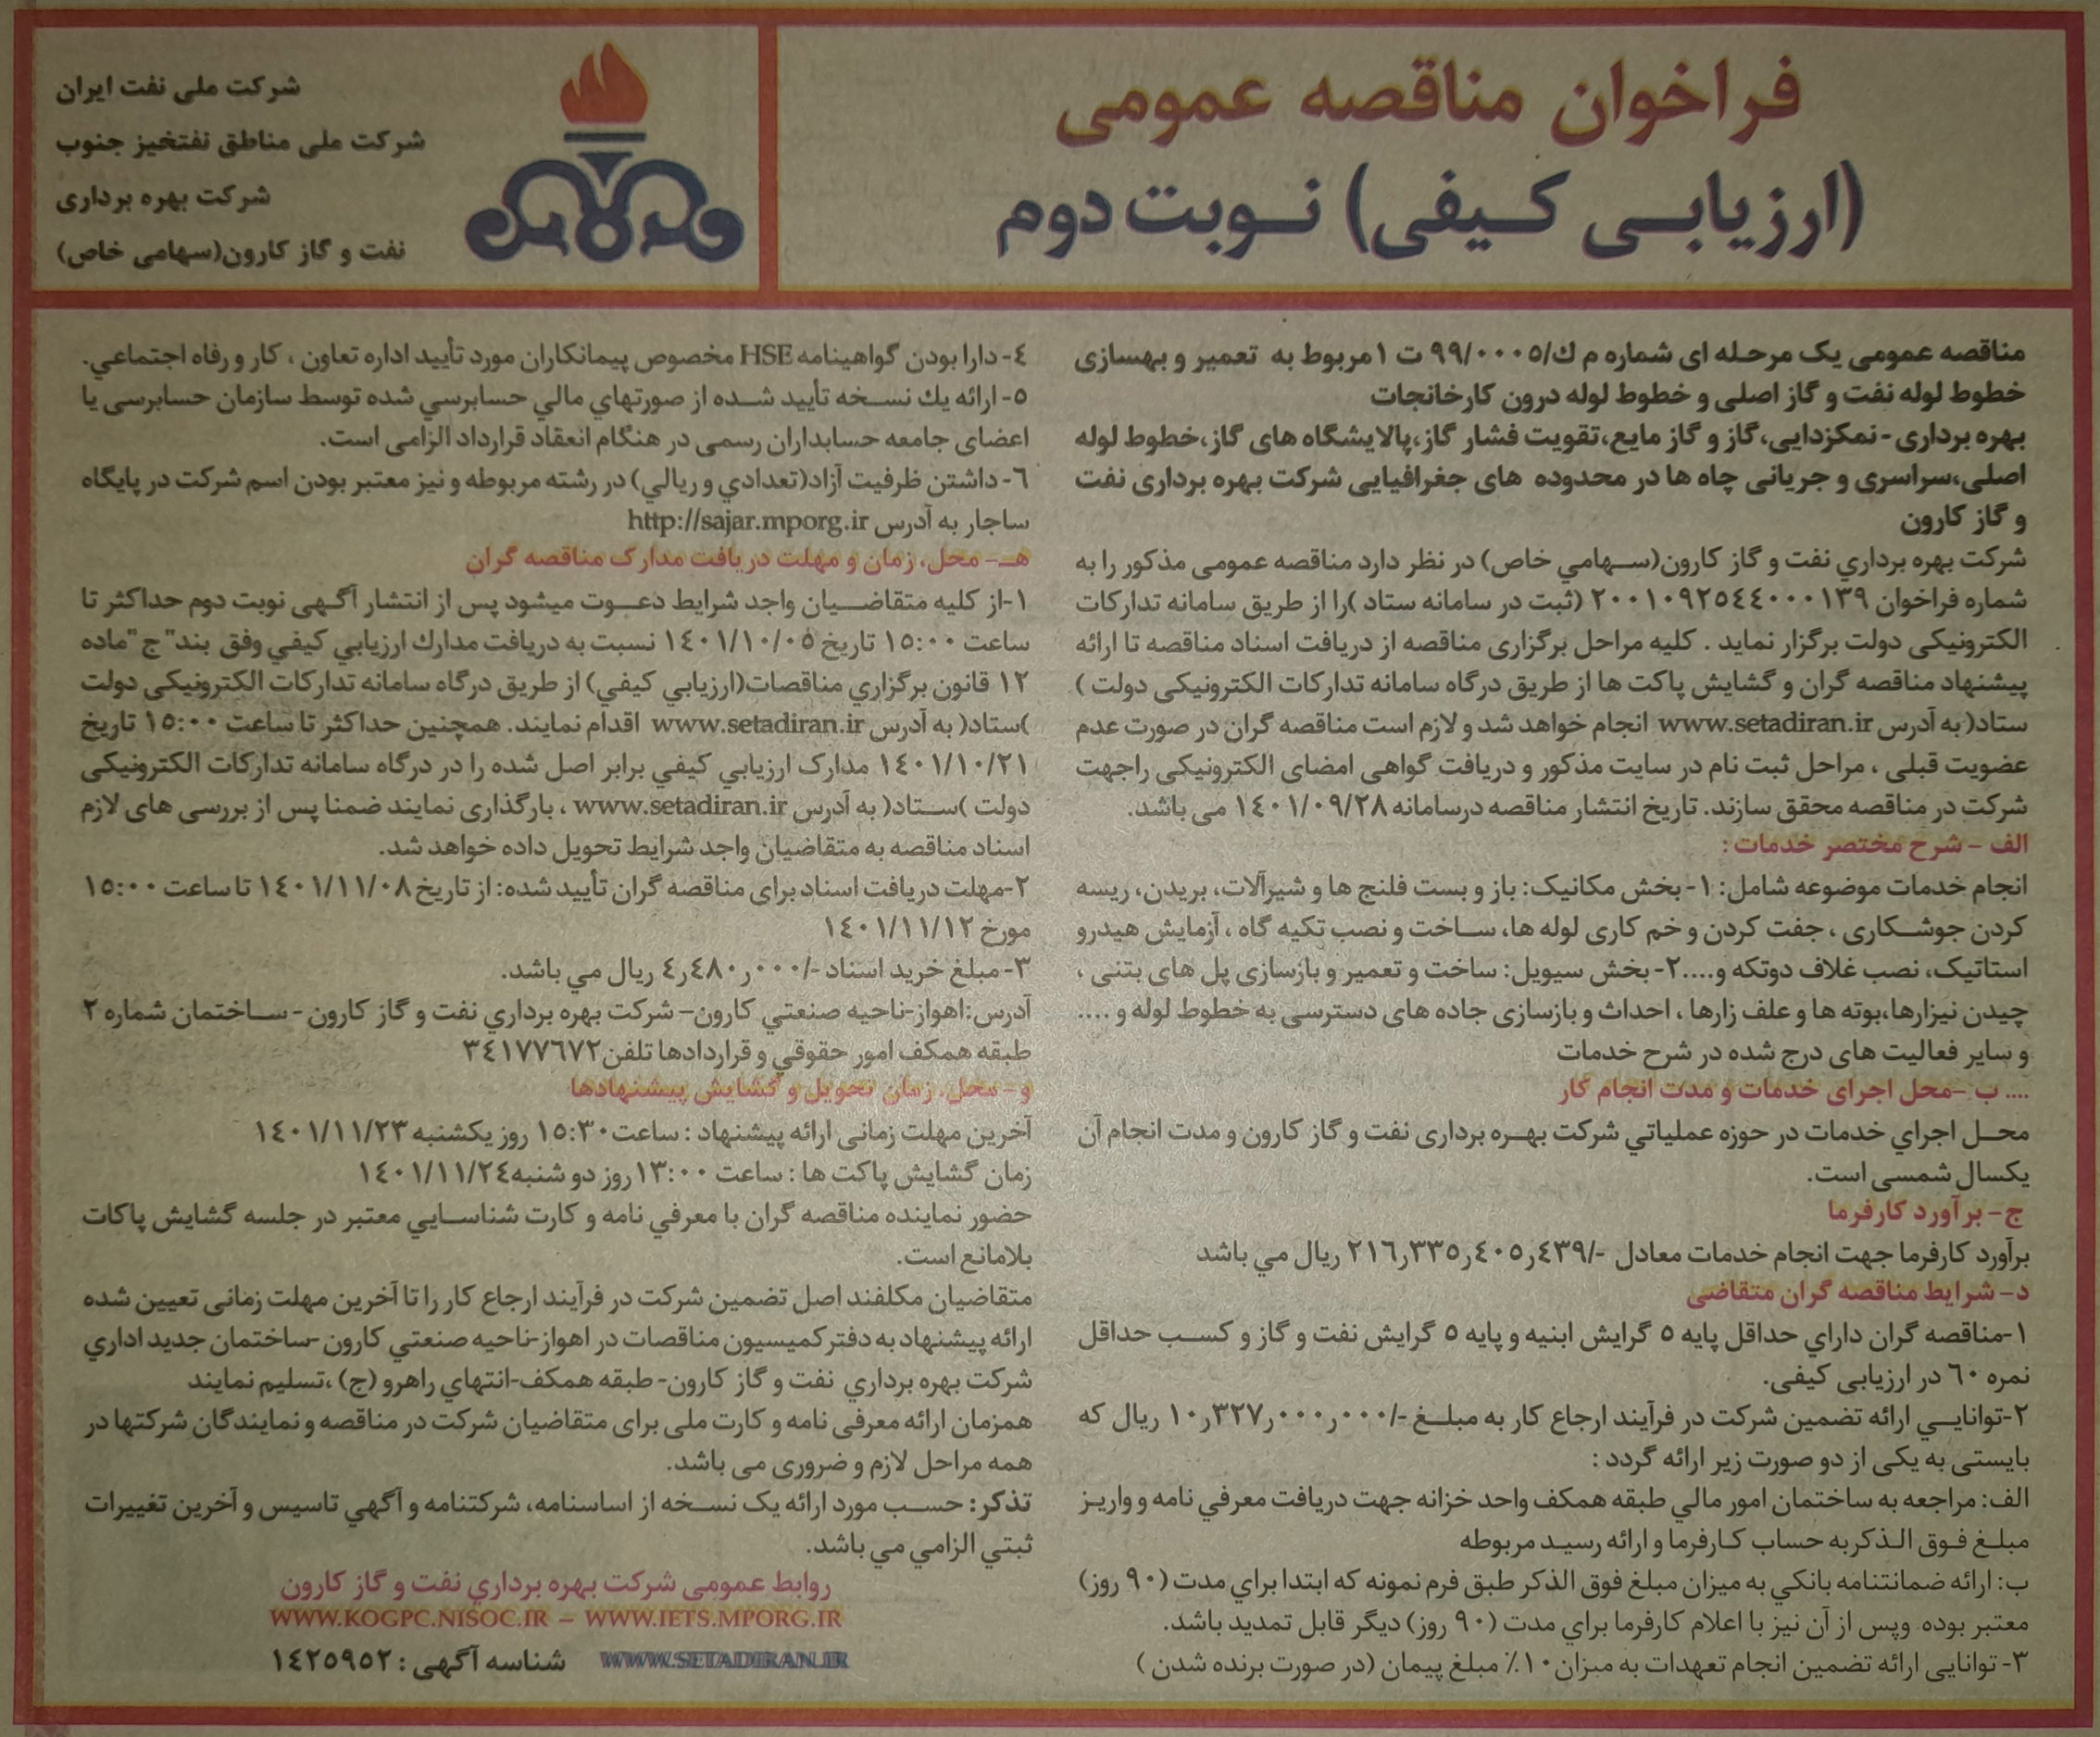 فراخوان مناقصه عمومی
(ارزیابـی کـیفی) نـوبت دوم
شرکت ملی نفت ایران
شرکت ملی مناطق نفتخیز جنوب
شرکت بهره برداری
نفت و گاز کارون(سهامی خاص)
مناقصه عمومی یک مرحـله ای شماره م ك/۹۹/۰۰۰۵ ت ۱ مربوط به تعمیر و بهسازی
خطوط لوله نفت و گاز اصلی و خطوط لوله درون کارخانجات
بهره برداری - نمکزدایی،گاز و گاز مایع،تقویت فشار گاز،پالایشگاه های گاز،خطوط لوله
اصلی،سراسری و جریانی چاه ها در محدوده های جغرافیایی شرکت بهره برداری نفت
و گاز کارون
شرکت بهره برداري نفت و گاز کارون(سـهامي خاص) در نظر دارد مناقصه عمومی مذکور را به
شماره فراخوان ۲۰۰۱۰۹۲۵٤٤۰۰۰۱۳۹ (ثبت در سامانه ستاد )را از طریق سامانه تدارکات
الکترونیکی دولت برگزار نماید . کلیه مراحل برگزاری مناقصه از دریافت اسناد مناقصه تا ارائه
پیشنهاد مناقصه گران و گشایش پاکت ها از طریق درگاه سامانه تدارکات الکترونیکی دولت )
ستاد( به آدرس www.setadiran.ir انجام خواهد شد و لازم است مناقصه گران در صورت عدم
عضویت قبلی ، مراحل ثبت نام در سایت مذکور و دریافت گواهی امضای الکترونیکی راجهت
شرکت در مناقصه محقق سازند. تاریخ انتشار مناقصه درسامانه ۱٤۰۱/۰۹/۲۸ می باشد.
الف - شرح مختصر خدمات :
انجام خدمات موضوعه شامل: ۱- بخش مکانیک: باز و بست فلنج ها و شیرآلات، بریدن، ریسه
کردن جوشـکاری ، جفت کردن و خم کاری لوله ها، سـاخت و نصب تکیه گاه ، آزمایش هیدرو
استاتیک، نصب غلاف دوتکه و....۲- بخش سیویل: ساخت و تعمیر و بازسازی پل های بتنی ،
چیدن نیزارها،بوته ها و علف زارها ، احداث و بازسازی جاده های دسترسی به خطوط لوله و ....
و سایر فعالیت های درج شده در شرح خدمات
.... ب -محل اجرای خدمات و مدت انجام کار
محـل اجراي خدمات در حوزه عملیاتي شرکت بهـره برداری نفت و گاز کارون و مدت انجام آن
یکسال شمسی است.
ج- برآورد کارفرما
برآورد کارفرما جهت انجام خدمات معادل -/۲۱٦ر۳۳٥ر٤۰٥ر٤۳۹ ریال مي باشد
د- شرایط مناقصه گران متقاضی
۱-مناقصه گران داراي حداقل پایه ٥ گرایش ابنیه و پایه ٥ گرایش نفت و گاز و کسـب حداقل
نمره ٦۰ در ارزیابی کیفی.
۲-توانایـي ارائه تضمین شرکت در فرآیند ارجاع کار به مبلـغ -/۱۰ر۳۲۷ر۰۰۰ر۰۰۰ ریال که
بایستی به یکی از دو صورت زیر ارائه گردد :
الف: مراجعه به ساختمان امور مالي طبقه همکف واحد خزانه جهت دریافت معرفي نامه و واریـز
مبلـغ فـوق الـذکربه حساب کـارفرما و ارائه رسیـد مربوطه
ب: ارائه ضمانتنامه بانکي به میزان مبلغ فوق الذکر طبق فرم نمونه که ابتدا براي مدت (۹۰ روز)
معتبر بوده وپس از آن نیز با اعلام کارفرما براي مدت (۹۰ روز) دیگر قابل تمدید باشد.
۳- توانایی ارائه تضمین انجام تعهدات به میزان ۱۰٪ مبلغ پیمان (در صورت برنده شدن )
٤- دارا بودن گواهینامه HSE مخصوص پیمانکاران مورد تأیید اداره تعاون ، کار و رفاه اجتماعي.
٥- ارائه یك نسـخه تأیید شـده از صورتهاي مالي حسابرسي شده توسط سازمان حسابرسی یا
اعضای جامعه حسابداران رسمی در هنگام انعقاد قرارداد الزامی است.
٦- داشتن ظرفیت آزاد(تعدادي و ریالي) در رشته مربوطه و نیز معتبر بودن اسم شرکت در پایگاه
ساجار به آدرس http://sajar.mporg.ir
هـ- محل، زمان و مهلت دریافت مدارک مناقصه گران
۱-از کلیه متقاضـیان واجد شرایط دعـوت میشود پس از انتشار آگـهی نوبت دوم حداکثر تا
ساعت ۱٥:۰۰ تاریخ ۱٤۰۱/۱۰/۰٥ نسبت به دریافت مدارك ارزیابي کیفي وفق بند" ج "ماده
۱۲ قانون برگزاري مناقصات(ارزیابي کیفي) از طریق درگاه سامانه تدارکات الکترونیکی دولت
)ستاد( به آدرس www.setadiran.ir اقدام نمایند. همچنین حداکثر تا ساعت ۱٥:۰۰ تاریخ
۱٤۰۱/۱۰/۲۱ مدارک ارزیابي کیفي برابر اصل شده را در درگاه سامانه تدارکات الکترونیکی
دولت )سـتاد( به آدرس www.setadiran.ir ، بارگذاری نمایند ضمنا پس از بررسی های لازم
اسناد مناقصه به متقاضیان واجد شرایط تحویل داده خواهد شد.
۲-مهلت دریافت اسناد برای مناقصه گران تأیید شده: از تاریخ ۱٤۰۱/۱۱/۰۸ تا ساعت ۱٥:۰۰
مورخ ۱٤۰۱/۱۱/۱۲
۳- مبلغ خرید اسناد -/٤ر٤۸۰ر۰۰۰ ریال مي باشد.
آدرس:اهواز-ناحیه صنعتي کارون- شرکت بهره برداري نفت و گاز کارون - سـاختمان شماره ۲
طبقه همکف امور حقوقي و قراردادها تلفن۳٤۱۷۷٦۷۲
و- محل، زمان تحویل و گشایش پیشنهادها
آخرین مهلت زمانی ارائه پیشنهاد : ساعت ۱٥:۳۰ روز یکشنبه ۱٤۰۱/۱۱/۲۳
زمان گشایش پاکت ها : ساعت ۱۳:۰۰ روز دو شنبه۱٤۰۱/۱۱/۲٤
حضور نماینده مناقصه گران با معرفي نامه و کارت شناسـایي معتبر در جلسه گشایش پاکات
بلامانع است.
متقاضیان مکلفند اصل تضمین شرکت در فرآیند ارجاع کار را تا آخرین مهلت زمانی تعیین شده
ارائه پیشنهاد به دفتر کمیسیون مناقصات در اهواز-ناحیه صنعتي کارون -ساختمان جدید اداري
شرکت بهره برداري نفت و گاز کارون- طبقه همکف-انتهاي راهرو (ج) ،تسلیم نمایند
همزمان ارائه معرفی نامه و کارت ملی برای متقاضیان شرکت در مناقصه و نمایندگان شرکتها در
همه مراحل لازم و ضروری می باشد.
تذکر: حسـب مورد ارائه یک نسـخه از اساسنامه، شرکتنامه و آگهي تاسیس و آخرین تغییرات
ثبتي الزامي مي باشد.
روابط عمومی شرکت بهره برداري نفت و گاز کارون
WWW.KOGPC.NISOC.IR – WWW.IETS.MPORG.IR
WWW.SETADIRAN.IR شناسه آگهی : ۱٤۲٥۹٥۲